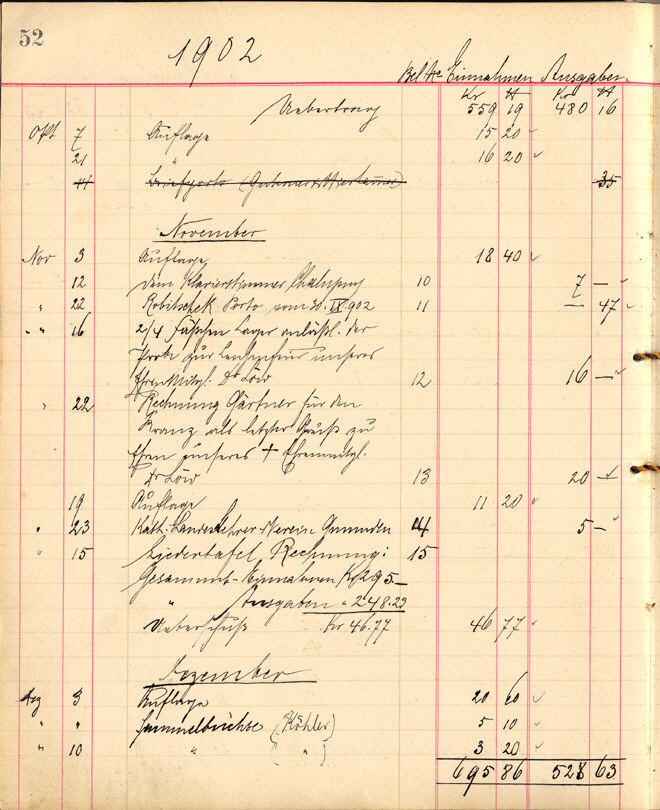 52
1902
Bel No Einnahmen Ausgaben.
Kr H Kr H
Uebertrag 559 19 480 16
Okt 7 Auflage 15 20
21 " 16 20
11 Briefporto 35
November
Nov 3 Auflage 18 40
12 dem Klavierstimmer 10 7 —
" 22 Robitschek Porto vom 30. IX. 902 11 — 47
" " 16 2/4 Fässchen Lager anläßl. der
Probe zur Leichenfeier unseres
Ehrenmitgl. Dr Löw 12 16 —
" 22 Rechnung Gärtner für den
Kranz als letzter Gruß zu
Ehren unseres + Ehrenmitgl.
Dr Löw 13 20 —
19 Auflage 11 20
" 23 Kath. Landeslehrer-Verein Gmunden 14 5 —
" 15 Liedertafel Rechnung: 15
Gesammt-Einnahmen Kr 295.—
" Ausgaben " 248.23
Ueberschuß Kr 46.77 46 77
Dezember
Dez 3 Auflage 20 60
" " Sammelbüchse (Köhler) 5 10
" 10 " ( " ) 3 20
695 86 528 63